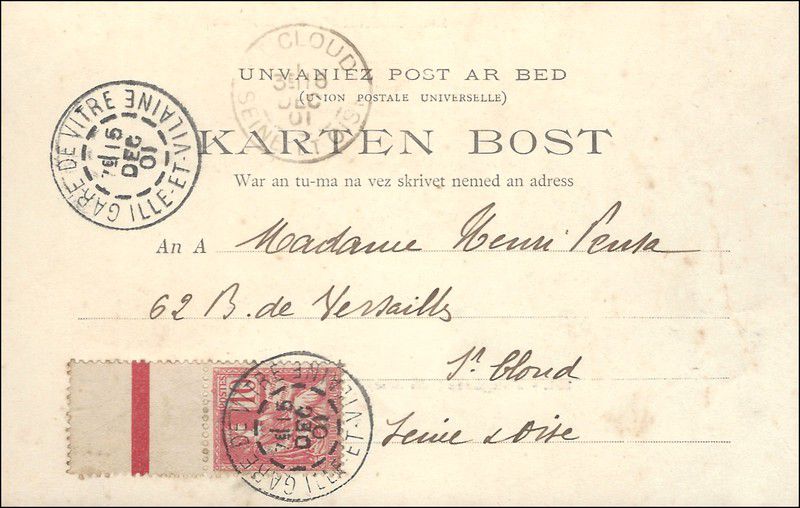 UNVANIEZ POST AR BED
(UNION POSTALE UNIVERSELLE)
KARTEN BOST
War an tu-ma na vez skrivet nemed an adress
An A Madame Henri
62 B. de Versailles
St Cloud
Seine & Oise
GARE DE VITRE ILLE-ET-VILAINE
15
DEC
01
CLOUD
DEC
01
SEINE-ET-OISE
POSTES
10
GARE DE VITRE ILLE-ET-VILAINE
15
DEC
01